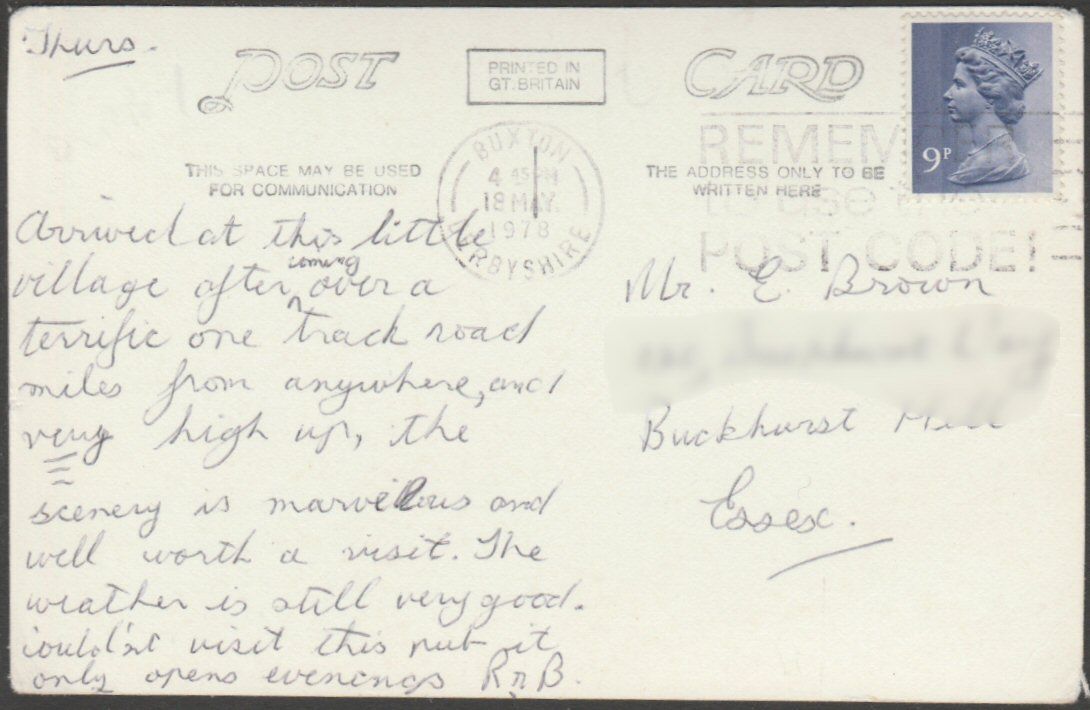 Thurs.
POST CARD
PRINTED IN
GT. BRITAIN
THIS SPACE MAY BE USED
FOR COMMUNICATION
THE ADDRESS ONLY TO BE
WRITTEN HERE
BUXTON
4 45 PM
18 MAY
1978
DERBYSHIRE
REMEM
to use the
POST CODE!
9P
Arrived at this little
village after coming over a
terrific one track road
miles from anywhere, and
very high up, the
scenery is marvellous and
well worth a visit. The
weather is still very good.
would'nt visit this pub it
only opens evenings R n B.
Mr. E. Brown
Buckhurst Hill
Essex.